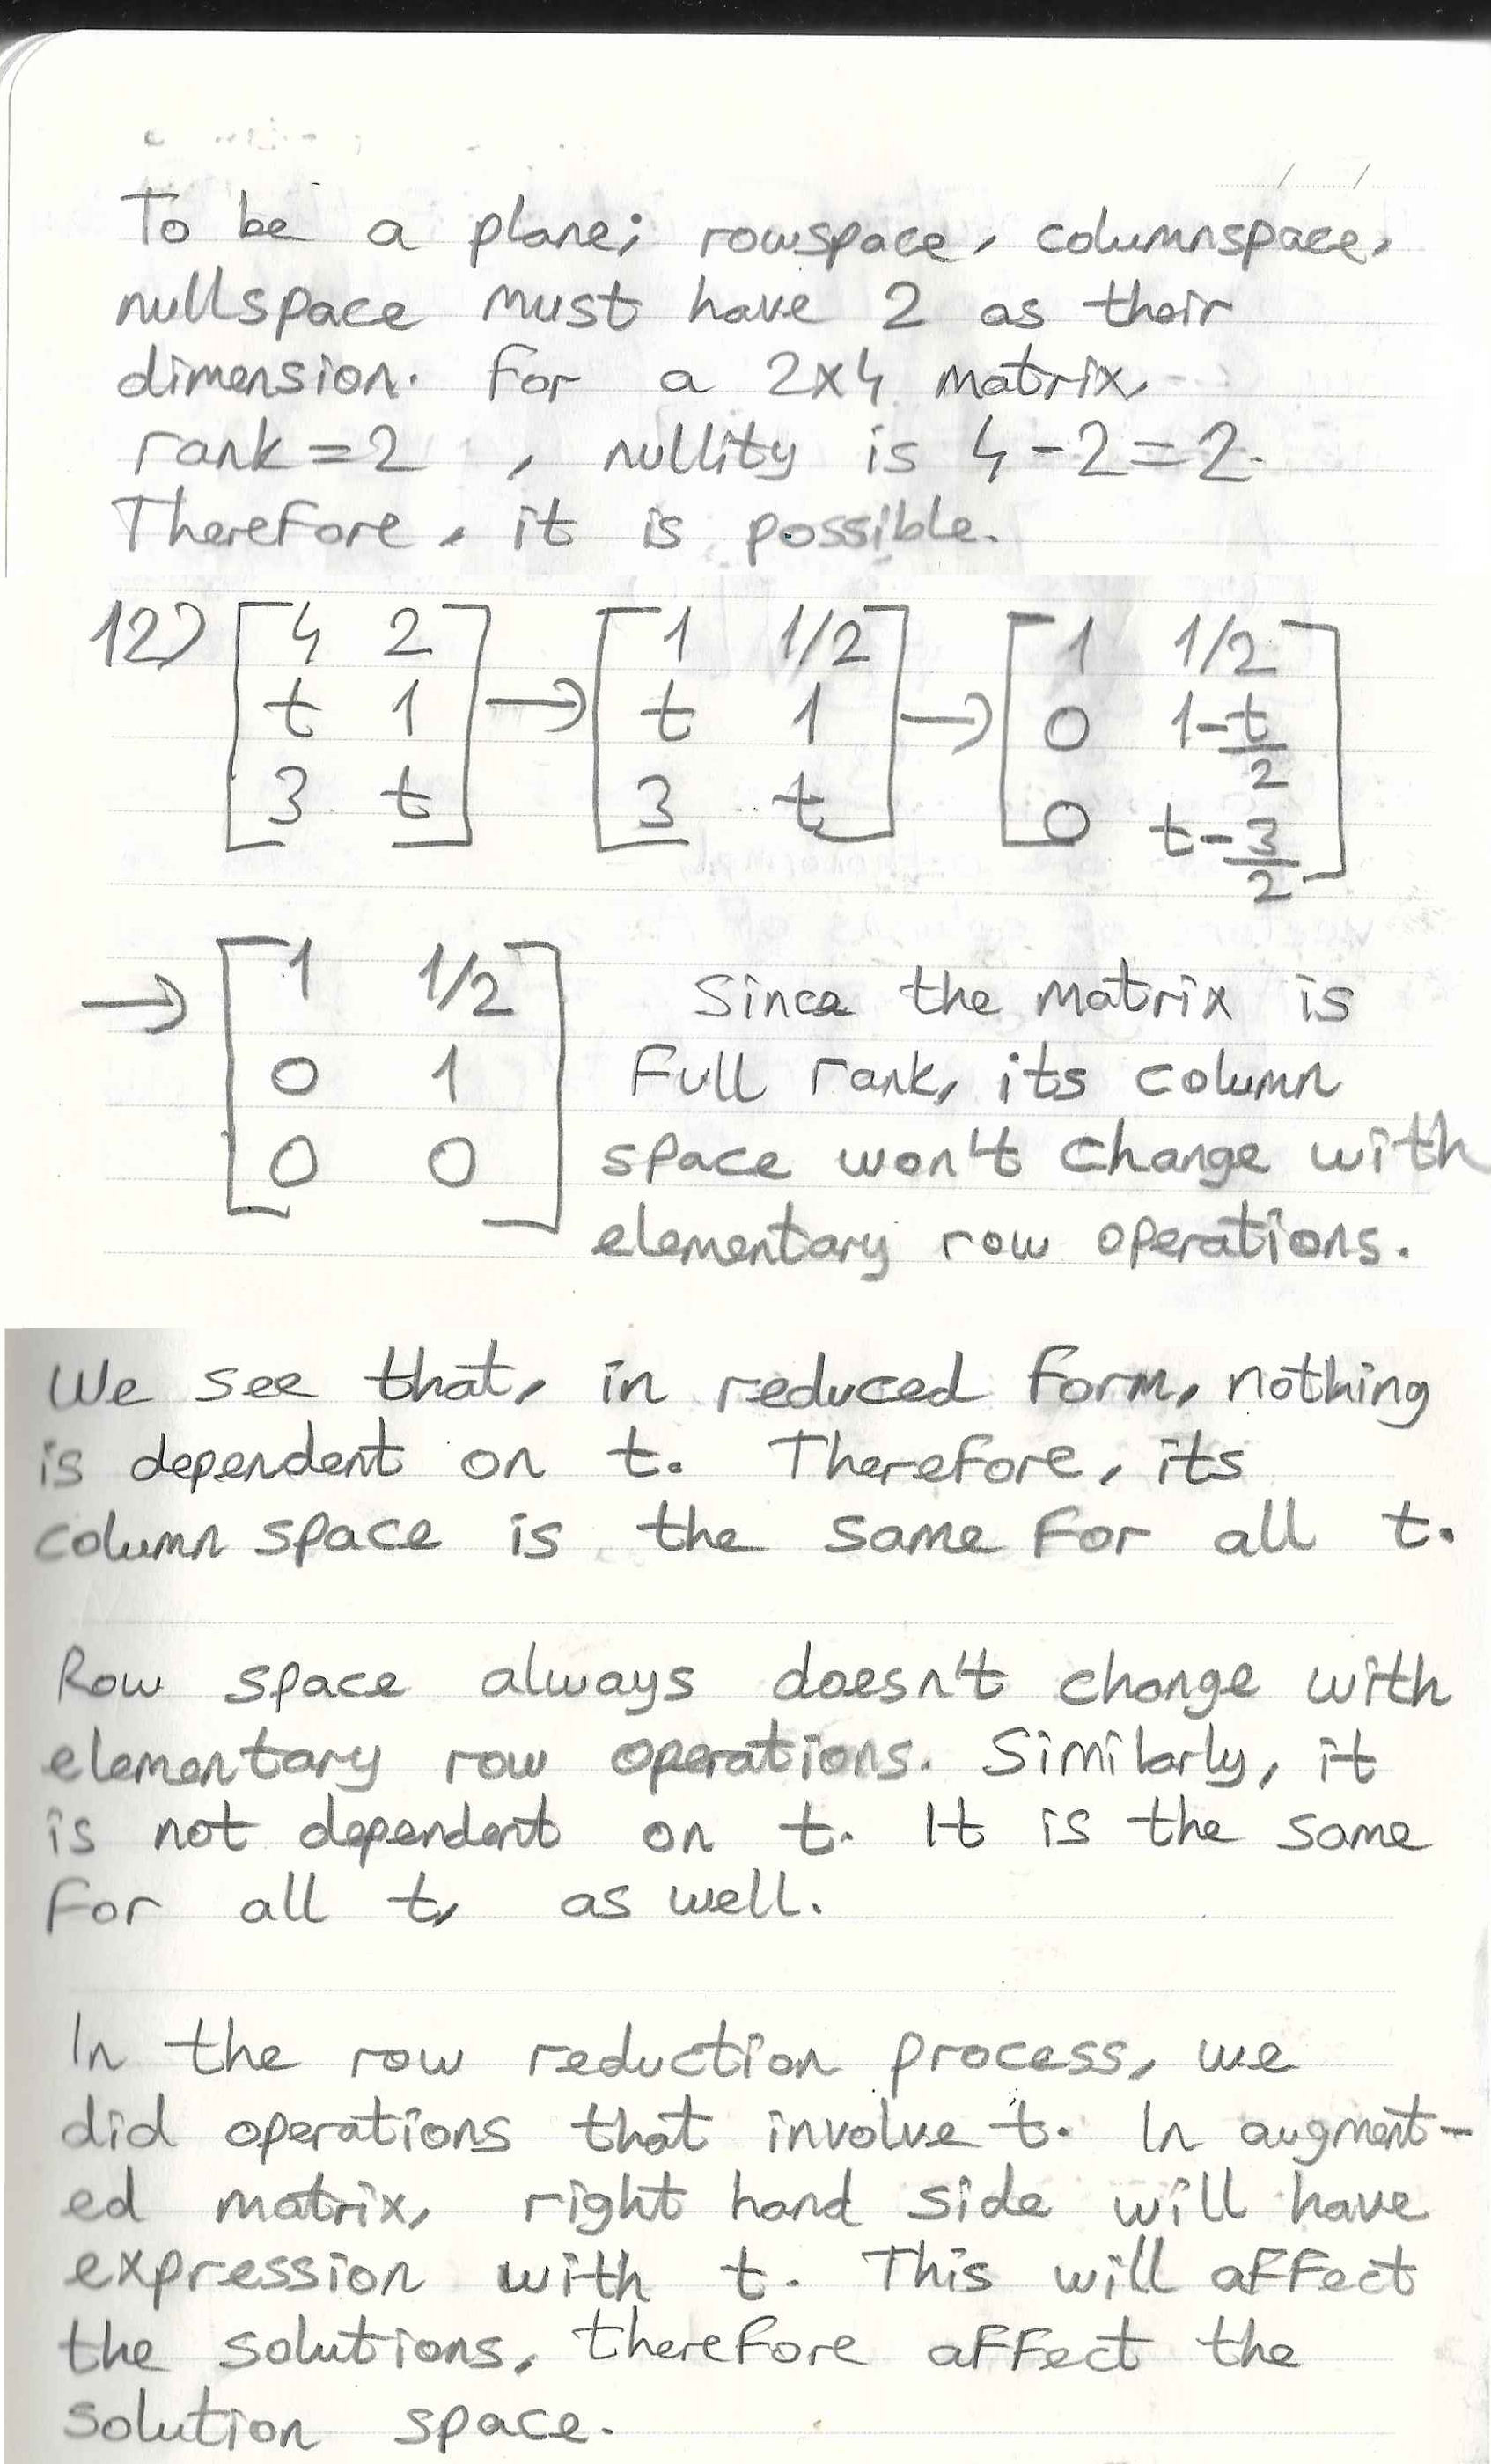 To be a plane; rowspace, columnspace,
nullspace must have 2 as their
dimension. For a 2x4 matrix,
rank=2 , nullity is 4-2=2.
Therefore, it is possible.
12) [4 2; t 1; 3 t] → [1 1/2; t 1; 3 t] → [1 1/2; 0 1-t/2; 0 t-3/2]
→ [1 1/2; 0 1; 0 0] Since the matrix is
full rank, its column
space won't change with
elementary row operations.
We see that, in reduced form, nothing
is dependent on t. Therefore, its
column space is the same for all t.
Row space always doesn't change with
elementary row operations. Similarly, it
is not dependent on t. It is the same
for all t, as well.
In the row reduction process, we
did operations that involve t. In augment-
ed matrix, right hand side will have
expression with t. This will affect
the solutions, therefore affect the
solution space.